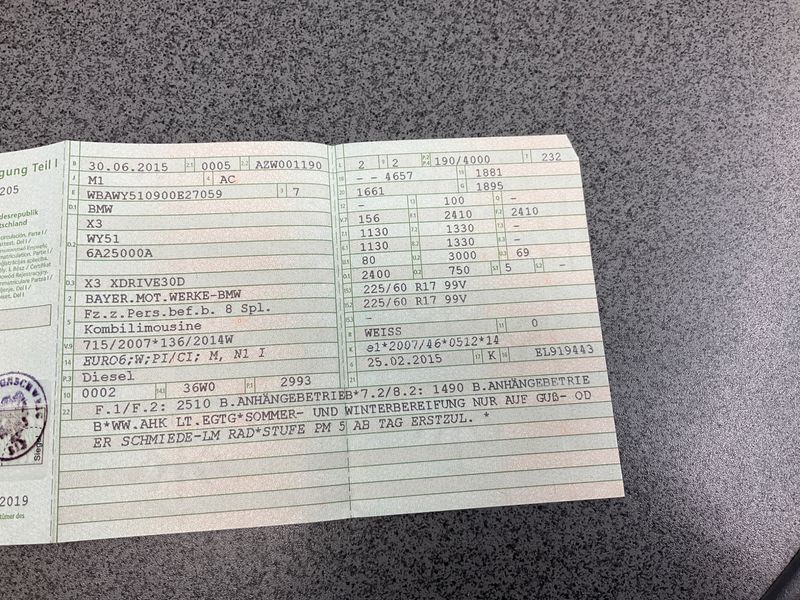 gung Teil I
205
desrepublik
tschland
2019
Siegel
B 30.06.2015 2.1 0005 2.2 AZW001190
J M1 4 AC
E WBAWY510900E27059 3 7
D.1 BMW
X3
D.2 WY51
6A25000A
D.3 X3 XDRIVE30D
2 BAYER.MOT.WERKE-BMW
5 Fz.z.Pers.bef.b. 8 Spl.
Kombilimousine
V.9 715/2007*136/2014W
14 EURO6;W;PI/CI; M, N1 I
P.3 Diesel
10 0002 14.1 36W0 P.1 2993
L 2 9 2 P.2 P.4 190/4000 T 232
18 - - 4657 19 1881
20 1661 G 1895
12 - 13 100 Q -
V.7 156 F.1 2410 F.2 2410
7.1 1130 7.2 1330 7.3 -
8.1 1130 8.2 1330 8.3 -
U.1 80 U.2 3000 U.3 69
O.1 2400 O.2 750 S.1 5 S.2 -
15.1 225/60 R17 99V
15.2 225/60 R17 99V
15.3 -
R WEISS 11 0
K e1*2007/46*0512*14
6 25.02.2015 17 K 16 EL919443
21
22 F.1/F.2: 2510 B.ANHÄNGEBETRIEB*7.2/8.2: 1490 B.ANHÄNGEBETRIE
B*WW.AHK LT.EGTG*SOMMER- UND WINTERBEREIFUNG NUR AUF GUß- OD
ER SCHMIEDE-LM RAD*STUFE PM 5 AB TAG ERSTZUL. *